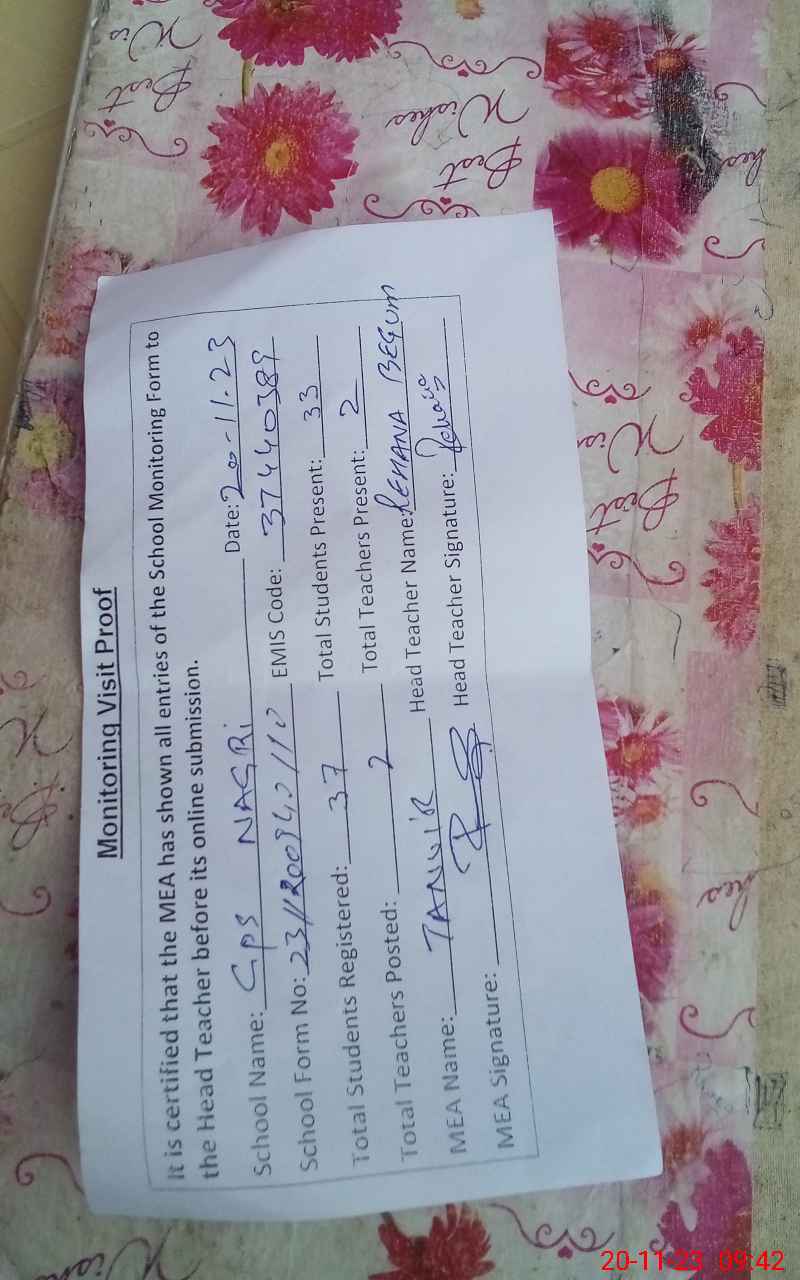 Monitoring Visit Proof
It is certified that the MEA has shown all entries of the School Monitoring Form to
the Head Teacher before its online submission.
School Name: GPS NAGRi Date: 20-11-23
School Form No: EMIS Code: 37440389
Total Students Registered: 37 Total Students Present: 33
Total Teachers Posted: 2 Total Teachers Present: 2
MEA Name: TANVIR Head Teacher Name: REHANA BEGUM
MEA Signature: Head Teacher Signature:
Best Wishes
20-11-23 09:42